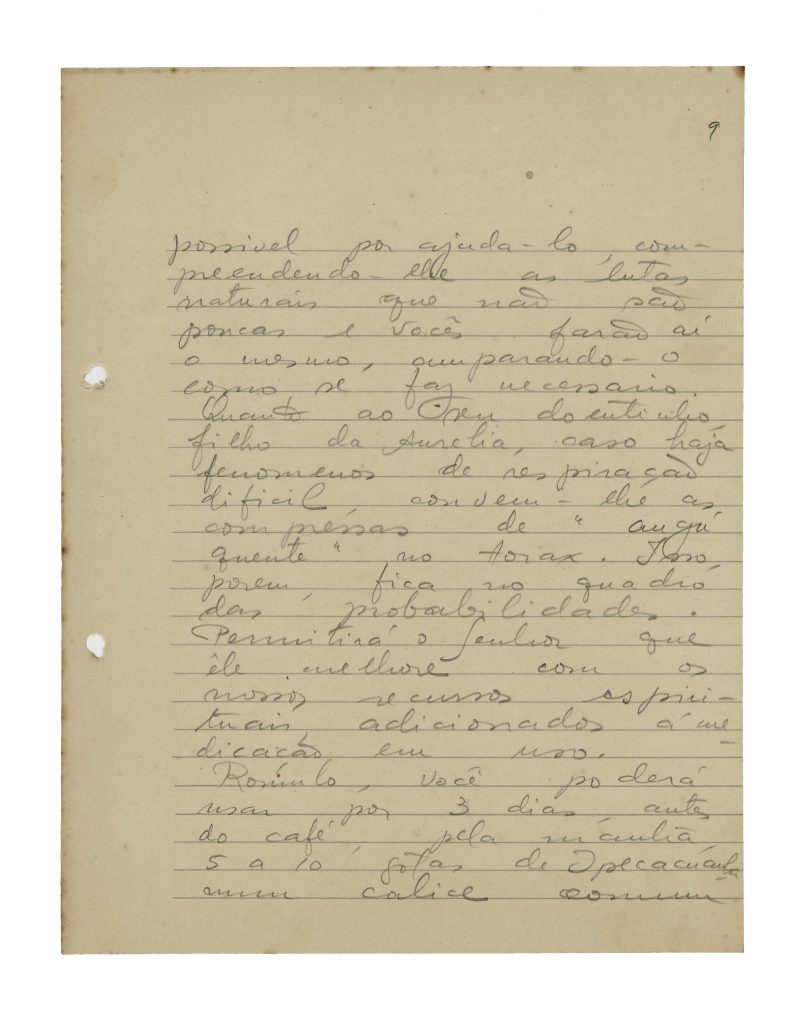 9
possivel por ajuda-lo, com-
preendendo-lhe as lutas
naturais que não são
poucas e vocês farão aí
o mesmo, amparando-o
como se faz necessario.
Quanto ao doentinho,
filho da Aurelia, caso haja
fenomenos de respiração
dificil, convem-lhe as
compréssas de "angú
quente" no torax. Isso,
porem, fica no quadro
das probabilidades.
Permitirá o Senhor que
êle melhore com os
nossos recursos espiri-
tuais, adicionados á me
dicação em uso.
Romulo, você poderá
usar por 3 dias, antes
do café, pela manhã,
5 a 10 gôtas de Ipecacuanha
num calice comum